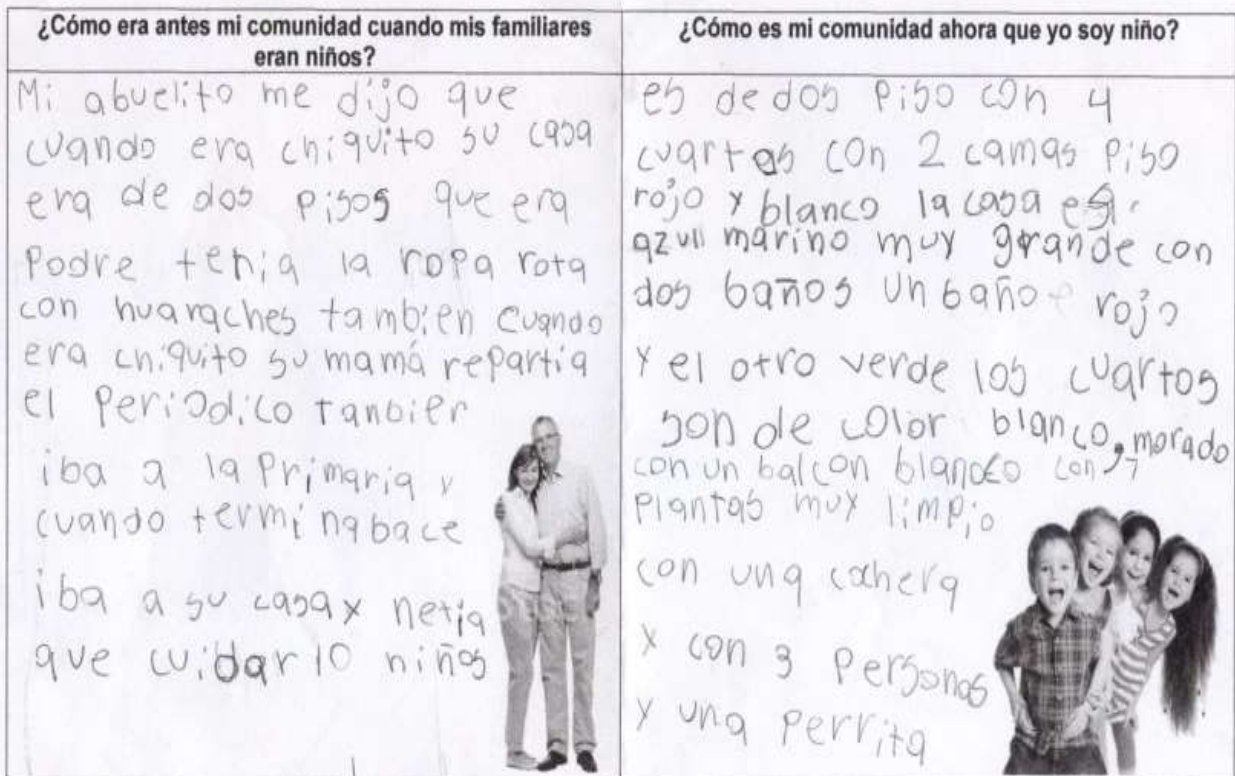 ¿Cómo era antes mi comunidad cuando mis familiares
eran niños?
Mi abuelito me dijo que
cuando era chiquito su casa
era de dos pisos que era
Podre tenia la ropa rota
con huaraches tambien cuando
era chiquito su mamá repartia
el Periodico tanbier
iba a la Primaria y
cuando terminabace
iba a su casa y netia
que cuidar 10 niños
¿Cómo es mi comunidad ahora que yo soy niño?
es de dos Piso con 4
cuartos con 2 camas Piso
rojo y blanco la casa es
azull marino muy grande con
dos baños un baño rojo
y el otro verde los cuartos
son de color blanco, morado
con un balcon blanco con 7
Plantas muy limpio
con una cochera
y con 3 Personas
y una perrita